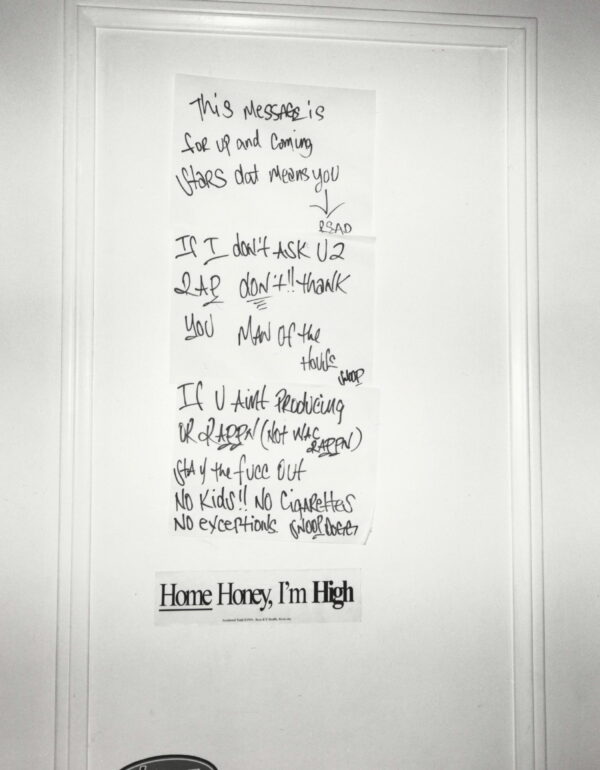 This MESSAGE is
for up and Coming
Stars dat means you
READ
If I don't ASK U 2
RAP don't!! thank
you MAN of the
House
SNOOP
If U Aint Producing
OR RAPPN (Not WAC
RAPPN)
Stay the fucc Out
No Kids!! No Cigarettes
No exceptions. SNOOP DOGG
Home Honey, I'm High